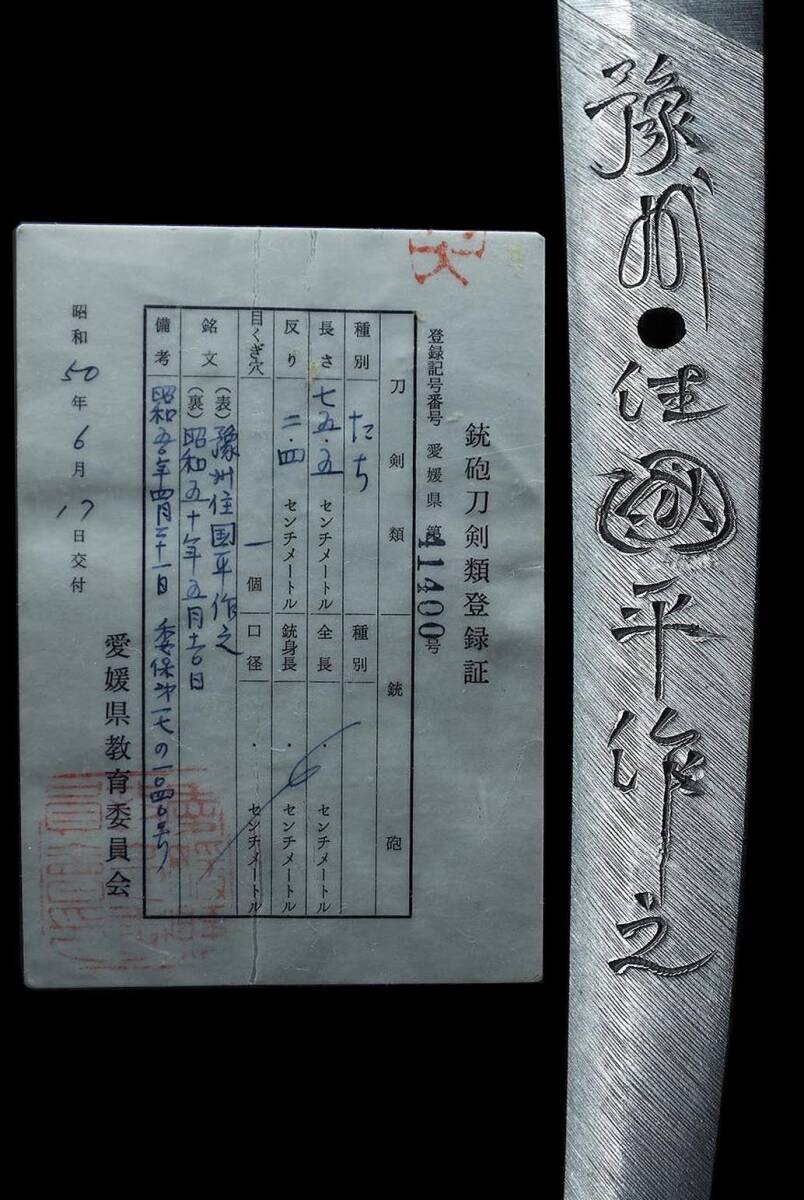 豫州住國平作之
銃砲刀剣類登録証
登録記号番号 愛媛県 第11400号
刀剣類 銃砲
種別 たち 種別
長さ 七五・五 センチメートル 全長 ・ センチメートル
反り 二・四 センチメートル 銃身長 ・ センチメートル
目くぎ穴 一個 口径 ・ センチメートル
銘文 (表)豫州住国平作之
(裏)昭和五十年五月吉日
備考 昭和五〇年四月二十一日 委保第一七の一〇四〇号
愛媛県教育委員会
昭和50年6月17日交付